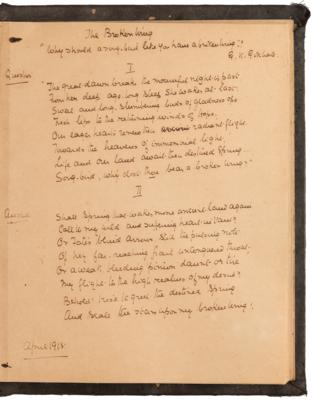 The Broken Wing
"Why should a song-bird like you have a broken wing?"
G. K. Gokhale.
I
Question
"The great dawn breaks, the mournful night is past,
From her deep age-long sleep she wakes at last
Sweet and long, slumbering buds of gladness ope
Fresh lips to the returning winds of hope,
Our eager hearts renew their radiant flight
Towards the heavens of immemorial light,
Life and our land await their destined Spring
Song-bird, why dost thou bear a broken wing?"
II
Answer
Shall Spring that wakes mine ancient land again
Call to my wild and suffering heart in vain?
Or Fate's blind arrows still the pulsing note
Of my far-reaching frail unconquered throat,
Or a weak, bleeding pinion daunt or tire
My flight to the high realms of my desire?
Behold! I rise to greet the destined Spring
And scale the stars upon my broken wing.
April 1918